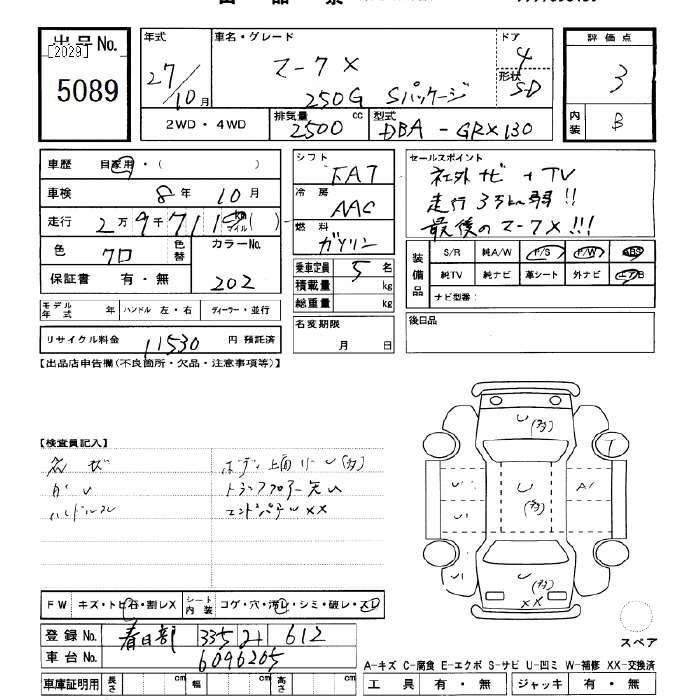 出品No.
[2029]
5089
年式
27/10月
車名・グレード
マークX
250G Sパッケージ
ドア
4
形状
SD
評価点
3
内装
B
2WD・4WD
排気量
2500 cc
型式
DBA-GRX130
車歴 自家用・( )
車検 8年10月
走行 2万9千711 マイル( )
色 クロ
色替
カラーNo.
202
保証書 有・無
モデル年式 年 ハンドル 左・右 ディーラー・並行
リサイクル料金 11530 円 預託済
シフト FAT
冷房 AAC
燃料 ガソリン
乗車定員 5 名
積載量 kg
総重量 kg
名変期限
月 日
セールスポイント
社外ナビ+TV
走行3万km弱!!
最後のマークX!!!
装備品
S/R 純A/W P/S P/W ABS
純TV 純ナビ 革シート 外ナビ
ナビ型番:
後日品
【出品店申告欄(不良箇所・欠品・注意事項等)】
【検査員記入】
ボディ上面
トランクフロアー
エンドパネル XX
FW キズ・トビ石・割レX
シート内装 コゲ・穴・汚レ・シミ・破レ・スレ
登録No. 春日部 335 612
車台No. 6096205
車庫証明用 長さ cm 幅 cm 高さ cm
U(多)
U(多)
A1
U(多)
XX
スペア
A-キズ C-腐食 E-エクボ S-サビ U-凹ミ W-補修 XX-交換済
工具 有・無 ジャッキ 有・無